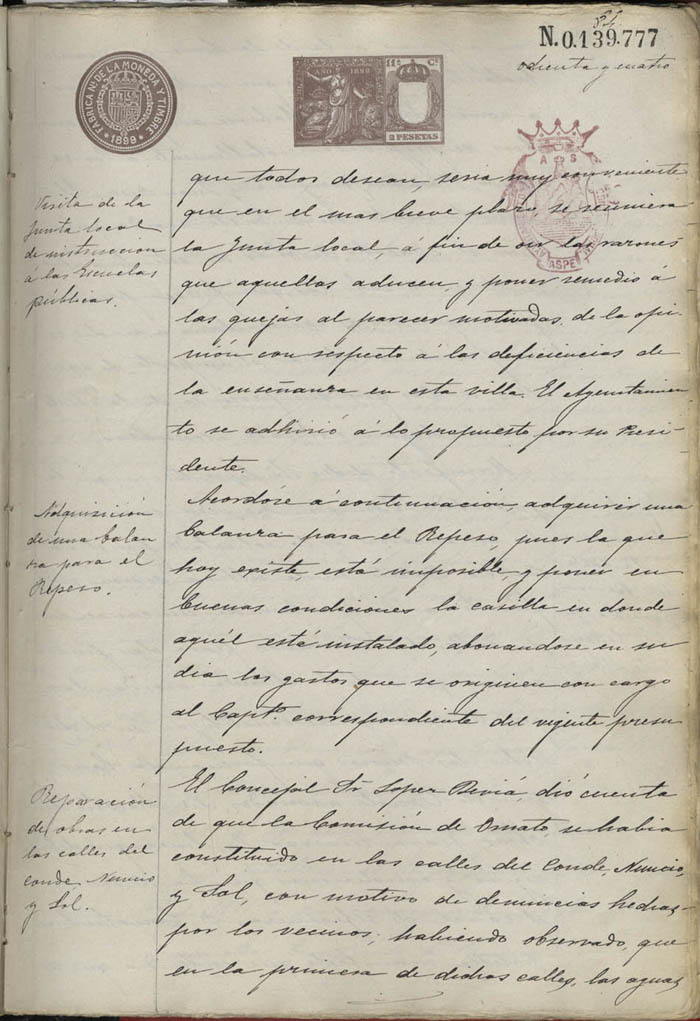 84
N.0.139.777
ochenta y cuatro
FABRICA Nal DE LA MONEDA Y TIMBRE
1898
AÑO 1899
11ª Cª
2 PESETAS
A S
ASPE
Visita de la
Junta local
de instruccion
á las Escuelas
públicas.
que todos desean, seria muy conveniente
que en el mas breve plazo, se reuniera
la Junta local, á fin de oir las razones
que aquellas aducen, y poner remedio á
las quejas al parecer motivadas, de la opi-
nión con respecto á las deficiencias de
la enseñanza en esta villa. El Ayuntamien
to se adhirió á lo propuesto por su Presi-
dente.
Adquisición
de una balan
za para el
Repeso.
Acordóse á continuación, adquirir una
balanza para el Repeso, pues la que
hoy existe, está imposible, y poner en
buenas condiciones la casilla en donde
aquél está instalado, abonandose en su
dia los gastos que se originen con cargo
al Captº. correspondiente del vigente presu
puesto.
Reparación
de obras en
las calles del
Conde, Nuncio
y Sol.
El Concejal Sr Loper Diviá, dió cuenta
de que la Comisión de Ornato, se habia
constituido en las calles del Conde, Nuncio,
y Sol, con motivo de denuncias hechas
por los vecinos; habiendo observado, que
en la primera de dichas calles, las aguas